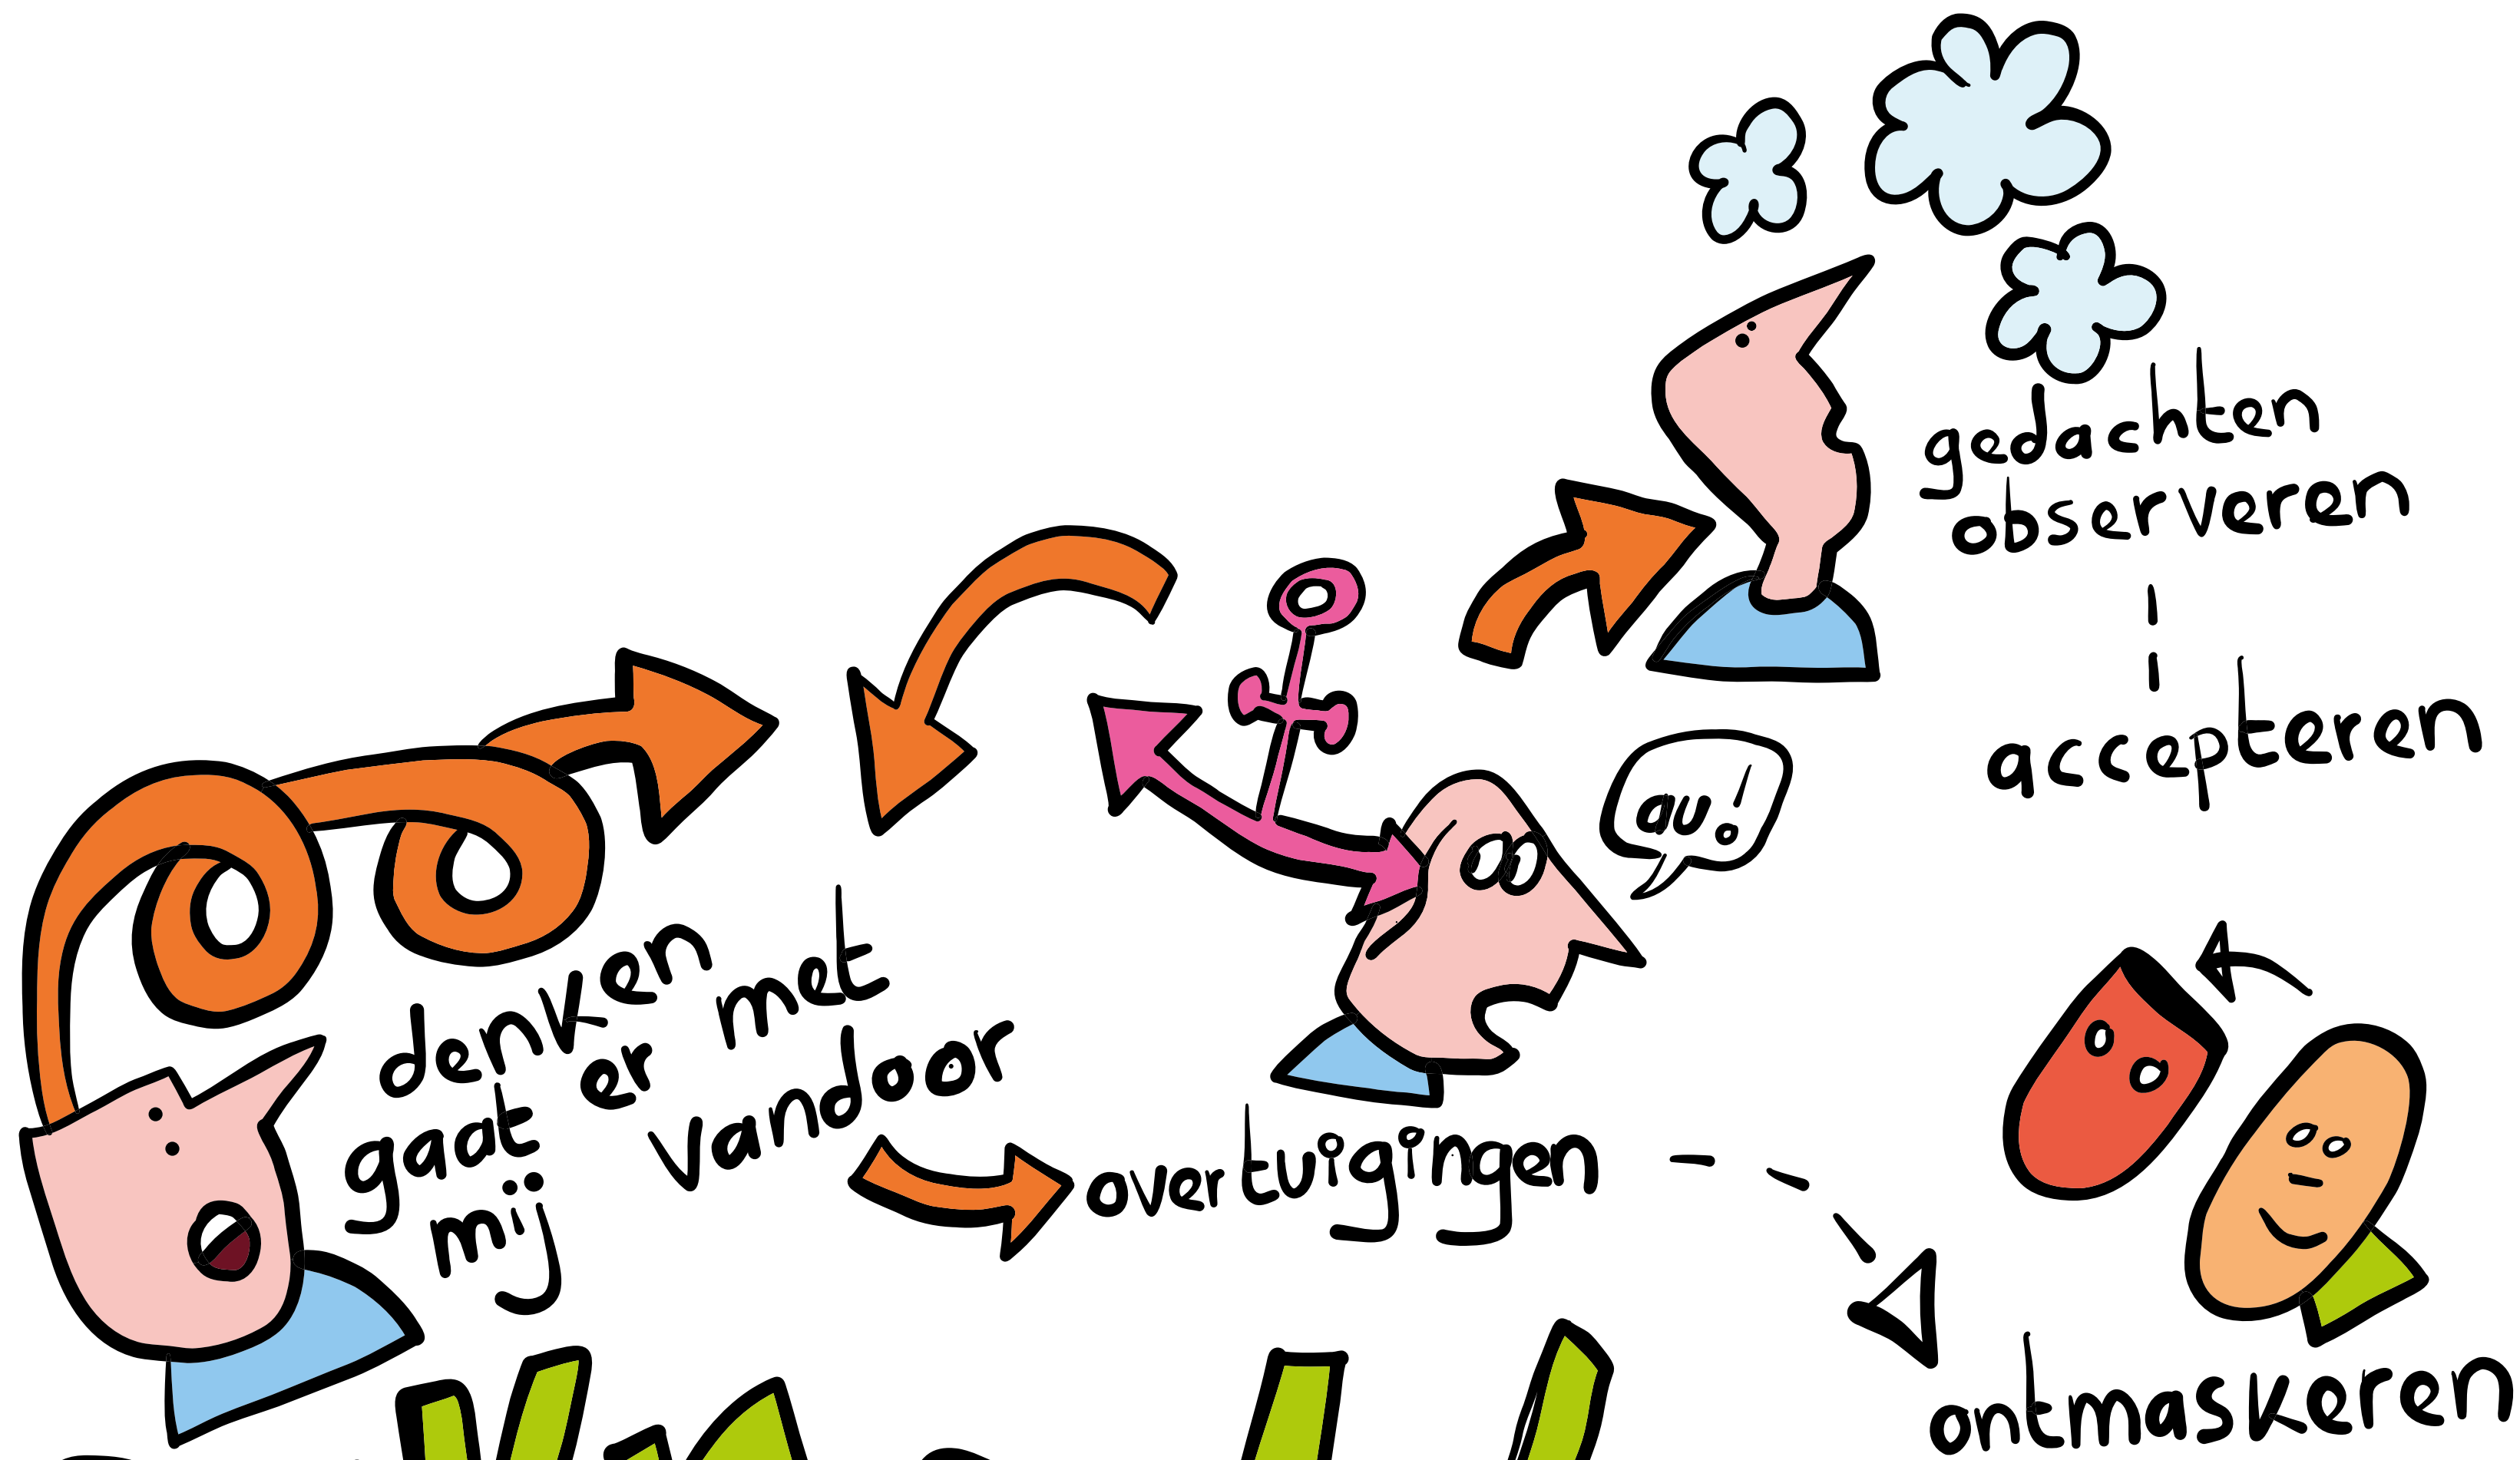 gedachten
observeren
accepteren
au!
denken
gaat er met
mij vandoor
overtuigingen
ontmaskeren